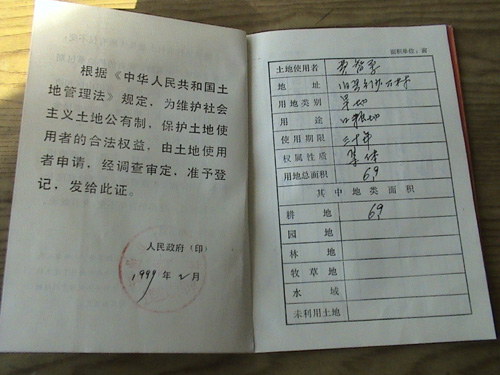 根据《中华人民共和国土
地管理法》规定，为维护社会
主义土地公有制，保护土地使
用者的合法权益，由土地使用
者申请，经调查审定，准予登
记，发给此证。
人民政府（印）
1999 年 2 月
面积单位：亩
土地使用者
地 址
用地类别 旱地
用 途 口粮地
使用期限 三十年
权属性质 集体
用地总面积 6.9
其中地类面积
耕 地 6.9
园 地
林 地
牧草地
水 域
未利用土地